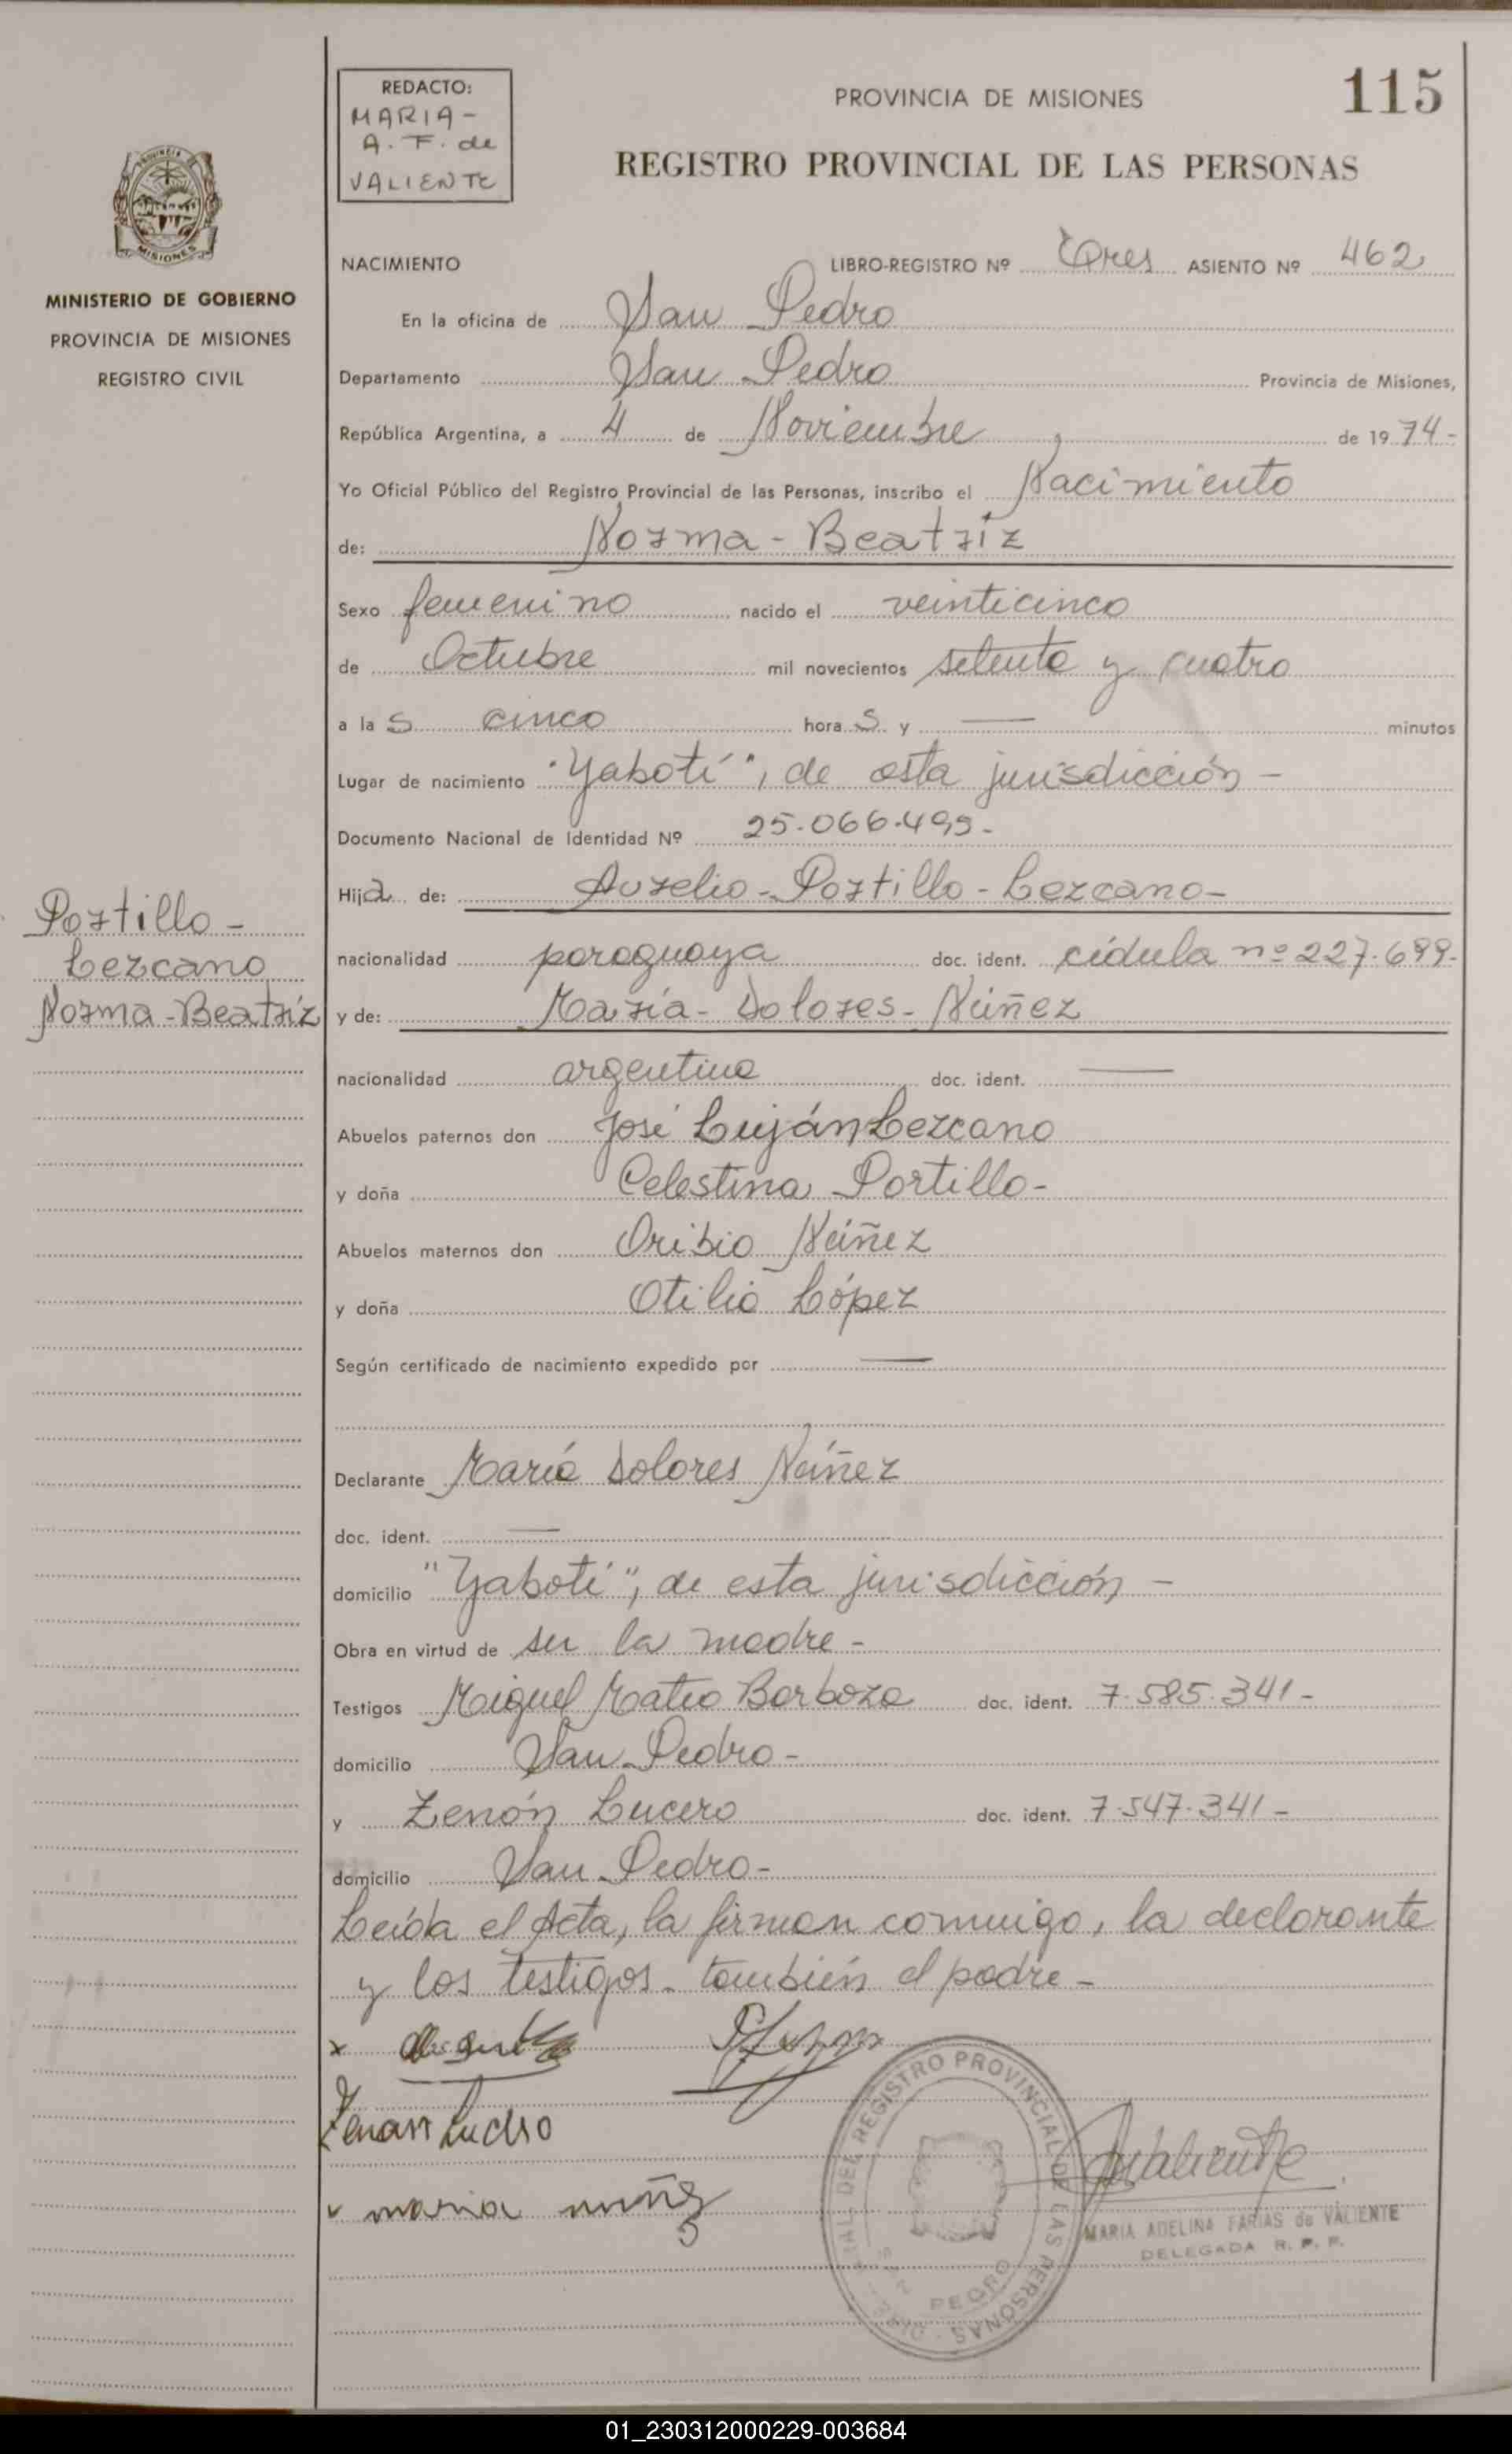 REDACTO:
MARIA-
A. F. de
VALIENTE
PROVINCIA DE MISIONES
115
REGISTRO PROVINCIAL DE LAS PERSONAS
MISIONES
MINISTERIO DE GOBIERNO
PROVINCIA DE MISIONES
REGISTRO CIVIL
NACIMIENTO LIBRO-REGISTRO Nº Tres ASIENTO Nº 462
En la oficina de San Pedro
Departamento San Pedro Provincia de Misiones,
República Argentina, a 4 de Noviembre, de 1974-
Yo Oficial Público del Registro Provincial de las Personas, inscribo el Nacimiento
de: Norma-Beatríz
Sexo femenino nacido el veinticinco
de Octubre mil novecientos setenta y cuatro
a la s cinco hora s y — minutos
Lugar de nacimiento "Yabotí", de esta jurisdicción-
Documento Nacional de Identidad Nº 25.066.499-
Hija de: Aurelio-Portillo-Lezcano-
Portillo-
Lezcano
Norma-Beatríz
nacionalidad paraguaya doc. ident. cédula nº 227.699-
y de: María-Dolores-Núñez
nacionalidad argentina doc. ident. —
Abuelos paternos don José Luján Lezcano
y doña Celestina Portillo-
Abuelos maternos don Oribio Núñez
y doña Otilia López
Según certificado de nacimiento expedido por —
Declarante María Dolores Núñez
doc. ident. —
domicilio "Yabotí", de esta jurisdicción-
Obra en virtud de ser la madre-
Testigos Miguel Mateo Barboza doc. ident. 7.585.341-
domicilio San Pedro-
y Zenón Lucero doc. ident. 7.547.341-
domicilio San Pedro-
Leída el Acta, la firman conmigo, la declarante
y los testigos. también el padre-
x
Zenon Lucero
maria nuñez
Valiente
REGISTRO PROVINCIAL DE LAS PERSONAS
PEDRO
MARIA ADELINA FARIAS de VALIENTE
DELEGADA R. P. P.
01_230312000229-003684